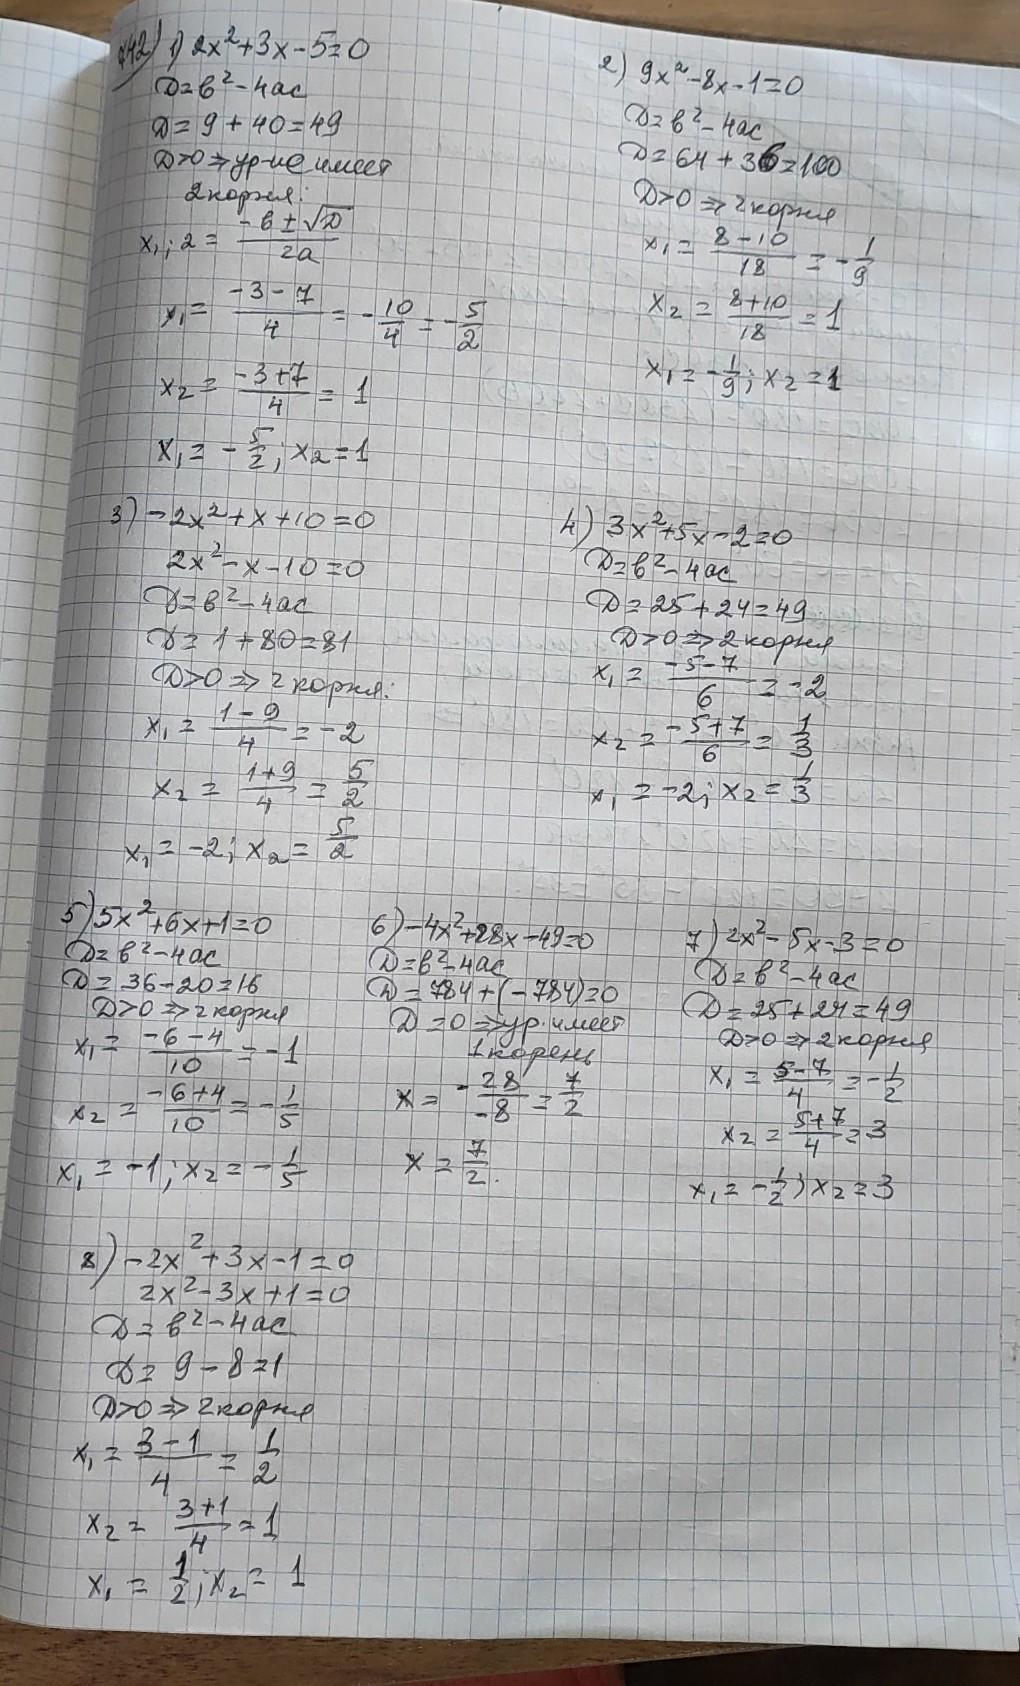 442) 1) 2x²+3x-5=0
D=b²-4ac
D=9+40=49
D>0⇒ур-ие имеет
2 корня:
x₁;₂ = (-b±√D)/2a
x₁ = (-3-7)/4 = -10/4 = -5/2
x₂ = (-3+7)/4 = 1
x₁ = -5/2; x₂=1
2) 9x²-8x-1=0
D=b²-4ac
D=64+36=100
D>0 ⇒ 2 корня
x₁ = (8-10)/18 = -1/9
x₂ = (8+10)/18 = 1
x₁ = -1/9; x₂ = 1
3) -2x²+x+10=0
2x²-x-10=0
D=b²-4ac
D=1+80=81
D>0 ⇒ 2 корня:
x₁ = (1-9)/4 = -2
x₂ = (1+9)/4 = 5/2
x₁ = -2; x₂ = 5/2
4) 3x²+5x-2=0
D=b²-4ac
D=25+24=49
D>0 ⇒ 2 корня
x₁ = (-5-7)/6 = -2
x₂ = (-5+7)/6 = 1/3
x₁ = -2; x₂ = 1/3
5) 5x²+6x+1=0
D=b²-4ac
D=36-20=16
D>0 ⇒ 2 корня
x₁ = (-6-4)/10 = -1
x₂ = (-6+4)/10 = -1/5
x₁ = -1; x₂ = -1/5
6) -4x²+28x-49=0
D=b²-4ac
D=784+(-784)=0
D=0 ⇒ ур. имеет
1 корень
x = -28/-8 = 7/2
x = 7/2.
7) 2x²-5x-3=0
D=b²-4ac
D=25+24=49
D>0 ⇒ 2 корня
x₁ = (5-7)/4 = -1/2
x₂ = (5+7)/4 = 3
x₁ = -1/2; x₂ = 3
8) -2x²+3x-1=0
2x²-3x+1=0
D=b²-4ac
D=9-8=1
D>0 ⇒ 2 корня
x₁ = (3-1)/4 = 1/2
x₂ = (3+1)/4 = 1
x₁ = 1/2; x₂ = 1